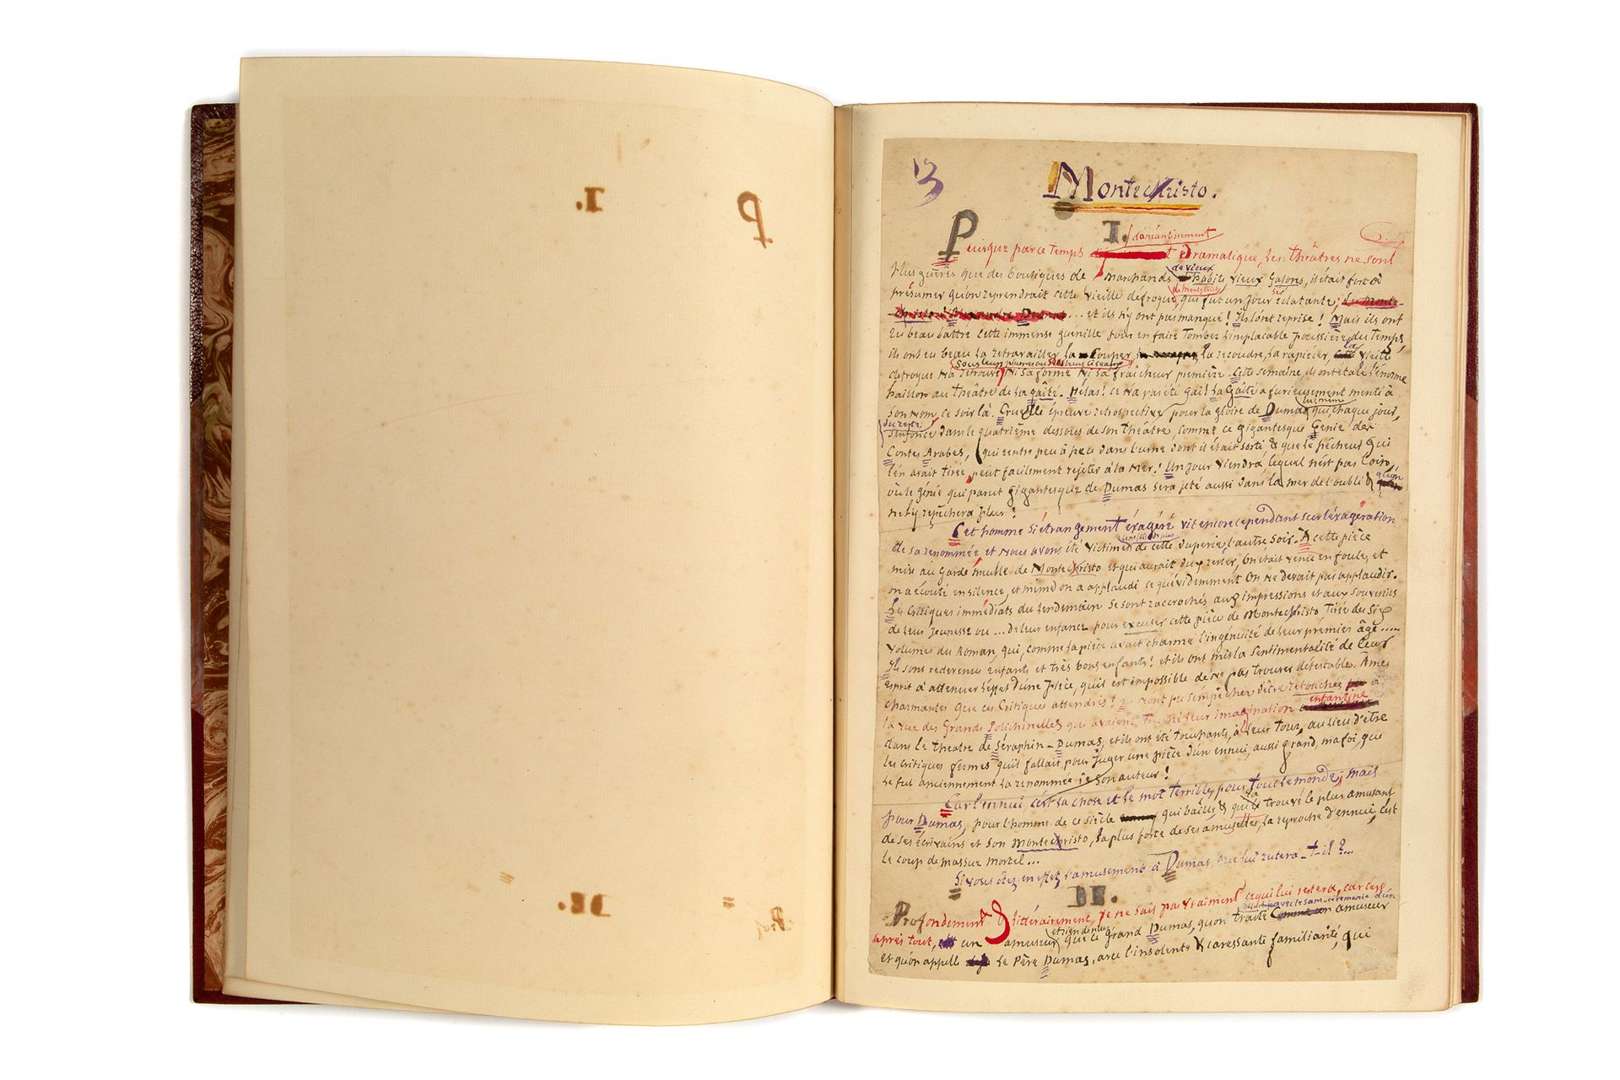 13
Monte Christo.
I.
d'anéantissement
Puisque par ce temps dramatique, les théâtres ne sont
plus guères que des boutiques de marchands de vieux habits, vieux galons, il était fort à
présumer qu'on reprendrait cette vieille défroque, qui fut un jour si éclatante;
... et ils n'y ont pas manqué! Ils l'ont reprise! Mais ils ont
eu beau battre cette immense guenille pour en faire tomber l'implacable poussière du temps,
ils ont eu beau la retravailler, la couper, la recoudre, la rapiécer, la vieille
défroque n'a retrouvé ni sa forme ni sa fraîcheur première. Cette semaine, on étala l'énorme
haillon au théâtre de la Gaîté. Hélas! ce n'a pas été gai! La Gaîté a furieusement menti à
son nom, ce soir là. Cruelle épreuve rétrospective pour la gloire de Dumas qui chaque jour,
s'enfonce dans le quatrième dessous de son théâtre, comme ce gigantesque Génie des
Contes Arabes, qui rentre peu à peu dans l'urne dont il était sorti & que le pêcheur qui
l'en avait tiré, peut facilement rejeter à la mer! Un jour viendra, lequel n'est pas loin,
où le génie qui parut gigantesque de Dumas sera jeté aussi dans la mer de l'oubli &
ne s'y repêchera plus!
Cet homme si étrangement éxagéré vit encore cependant sur l'éxagération
de sa renommée et nous avons été victimes de cette duperie, l'autre soir. A cette pièce
mise au garde meuble de Monte Christo et qui aurait dû y rester, on était venu en foule, et
on a écouté en silence, et même on a applaudi ce qu'évidemment on ne devait pas applaudir.
Les critiques immédiats du lendemain se sont raccrochés aux impressions et aux souvenirs
de leur jeunesse ou ... de leur enfance pour excuser cette pièce de Monte Christo tirée des six
volumes du Roman qui, comme la pièce avait charmé l'ingénuité de leur premier âge....
Ils sont redevenus enfants et très bons enfants! et ils ont mis la sentimentalité de leur
esprit à atténuer l'effet d'une pièce, qu'il est impossible de ne pas trouver détestable. Ames
charmantes que ces critiques attendris! à
la vue des Grands Polichinelles qui avaient leur imagination enfantine
dans le théâtre de Séraphin-Dumas, et ils ont été touchants, à leur tour, au lieu d'être
les critiques fermes qu'il fallait pour juger une pièce d'un ennui, aussi grand, ma foi, que
le fut anciennement la renommée de son auteur!
Car l'ennui c'est la chose et le mot terribles pour tout le monde; mais
pour Dumas, pour l'homme de ce siècle qui bâille & qui l'a trouvé le plus amusant
de ses écrivains et son Monte Christo, la plus forte de ses amusettes, le reproche d'ennui, c'est
le coup de massue mortel...
Si vous ôtez en effet l'amusement à Dumas, que lui restera-t-il?...
II.
Profondément & littérairement, je ne sais pas vraiment ce qui lui restera, car c'est
après tout, un amuseur et rien de plus que ce grand Dumas, qu'on traite amuseur
et qu'on appelle le Père Dumas, avec l'insolente & caressante familiarité, qui